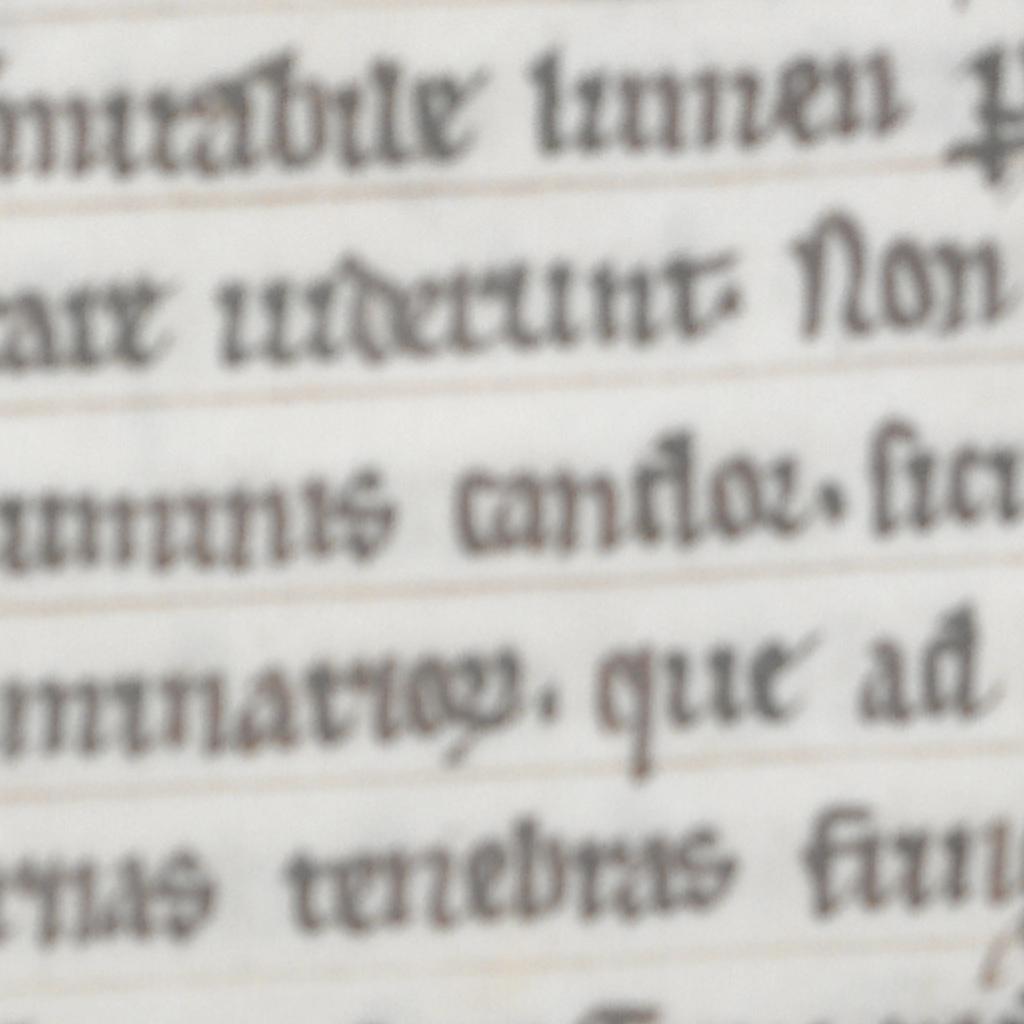 mirabile lumen
uiderunt. Non
luminis candor. sicu
minarioꝝ. que ad
rnas tenebras